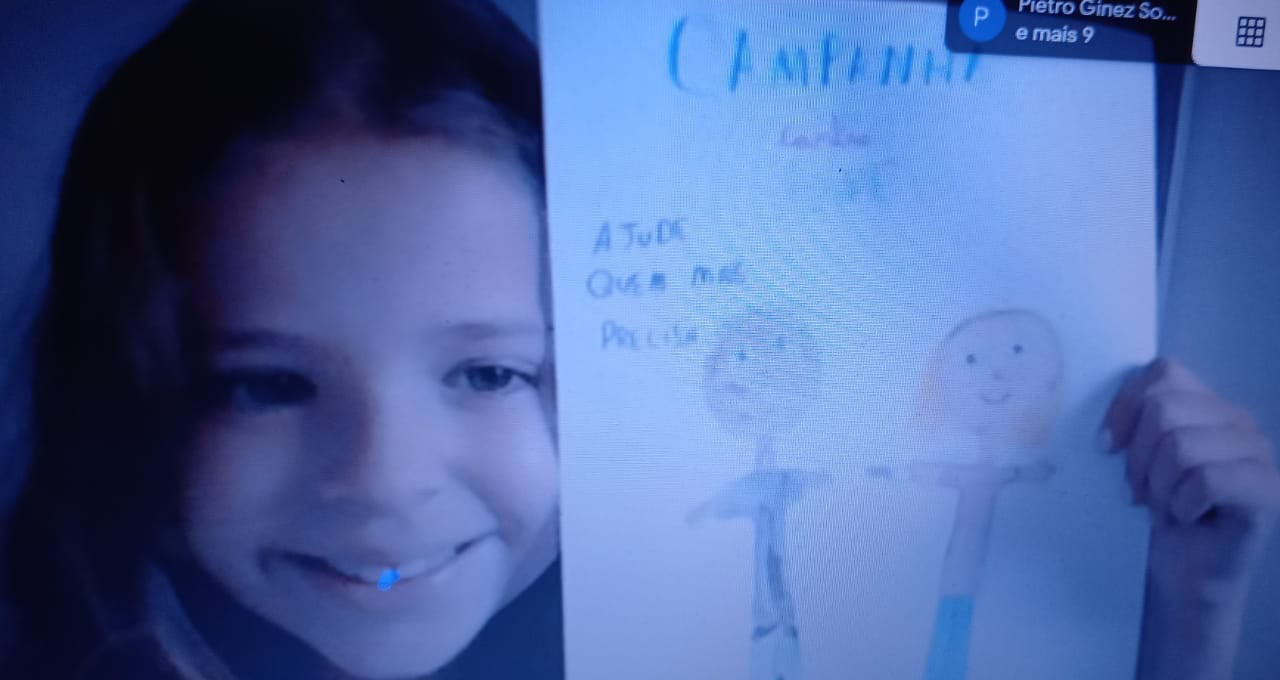 P
Pietro Ginez So...
e mais 9
CAMPANHA
AJUDE
QUEM MAIS
PRECISA